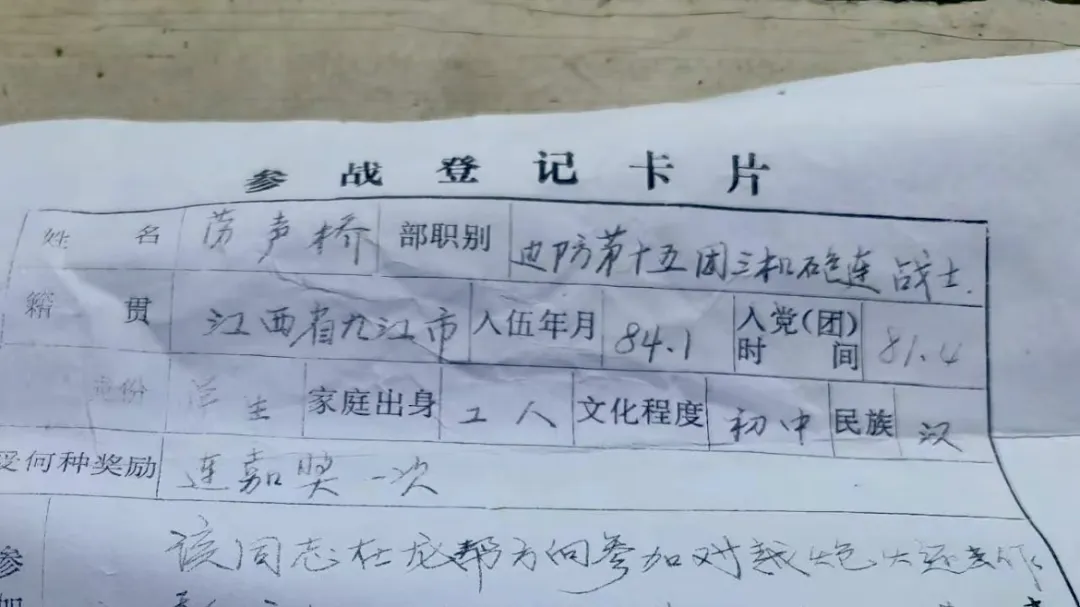 参战登记卡片
姓名 劳声桥 部职别 边防第十五团三机炮连 战士.
籍贯 江西省九江市 入伍年月 84.1 入党(团)时间 81.4
身份 学生 家庭出身 工人 文化程度 初中 民族 汉
受何种奖励 连嘉奖一次
参加 该同志在龙邦方向参加对越炮火还击作